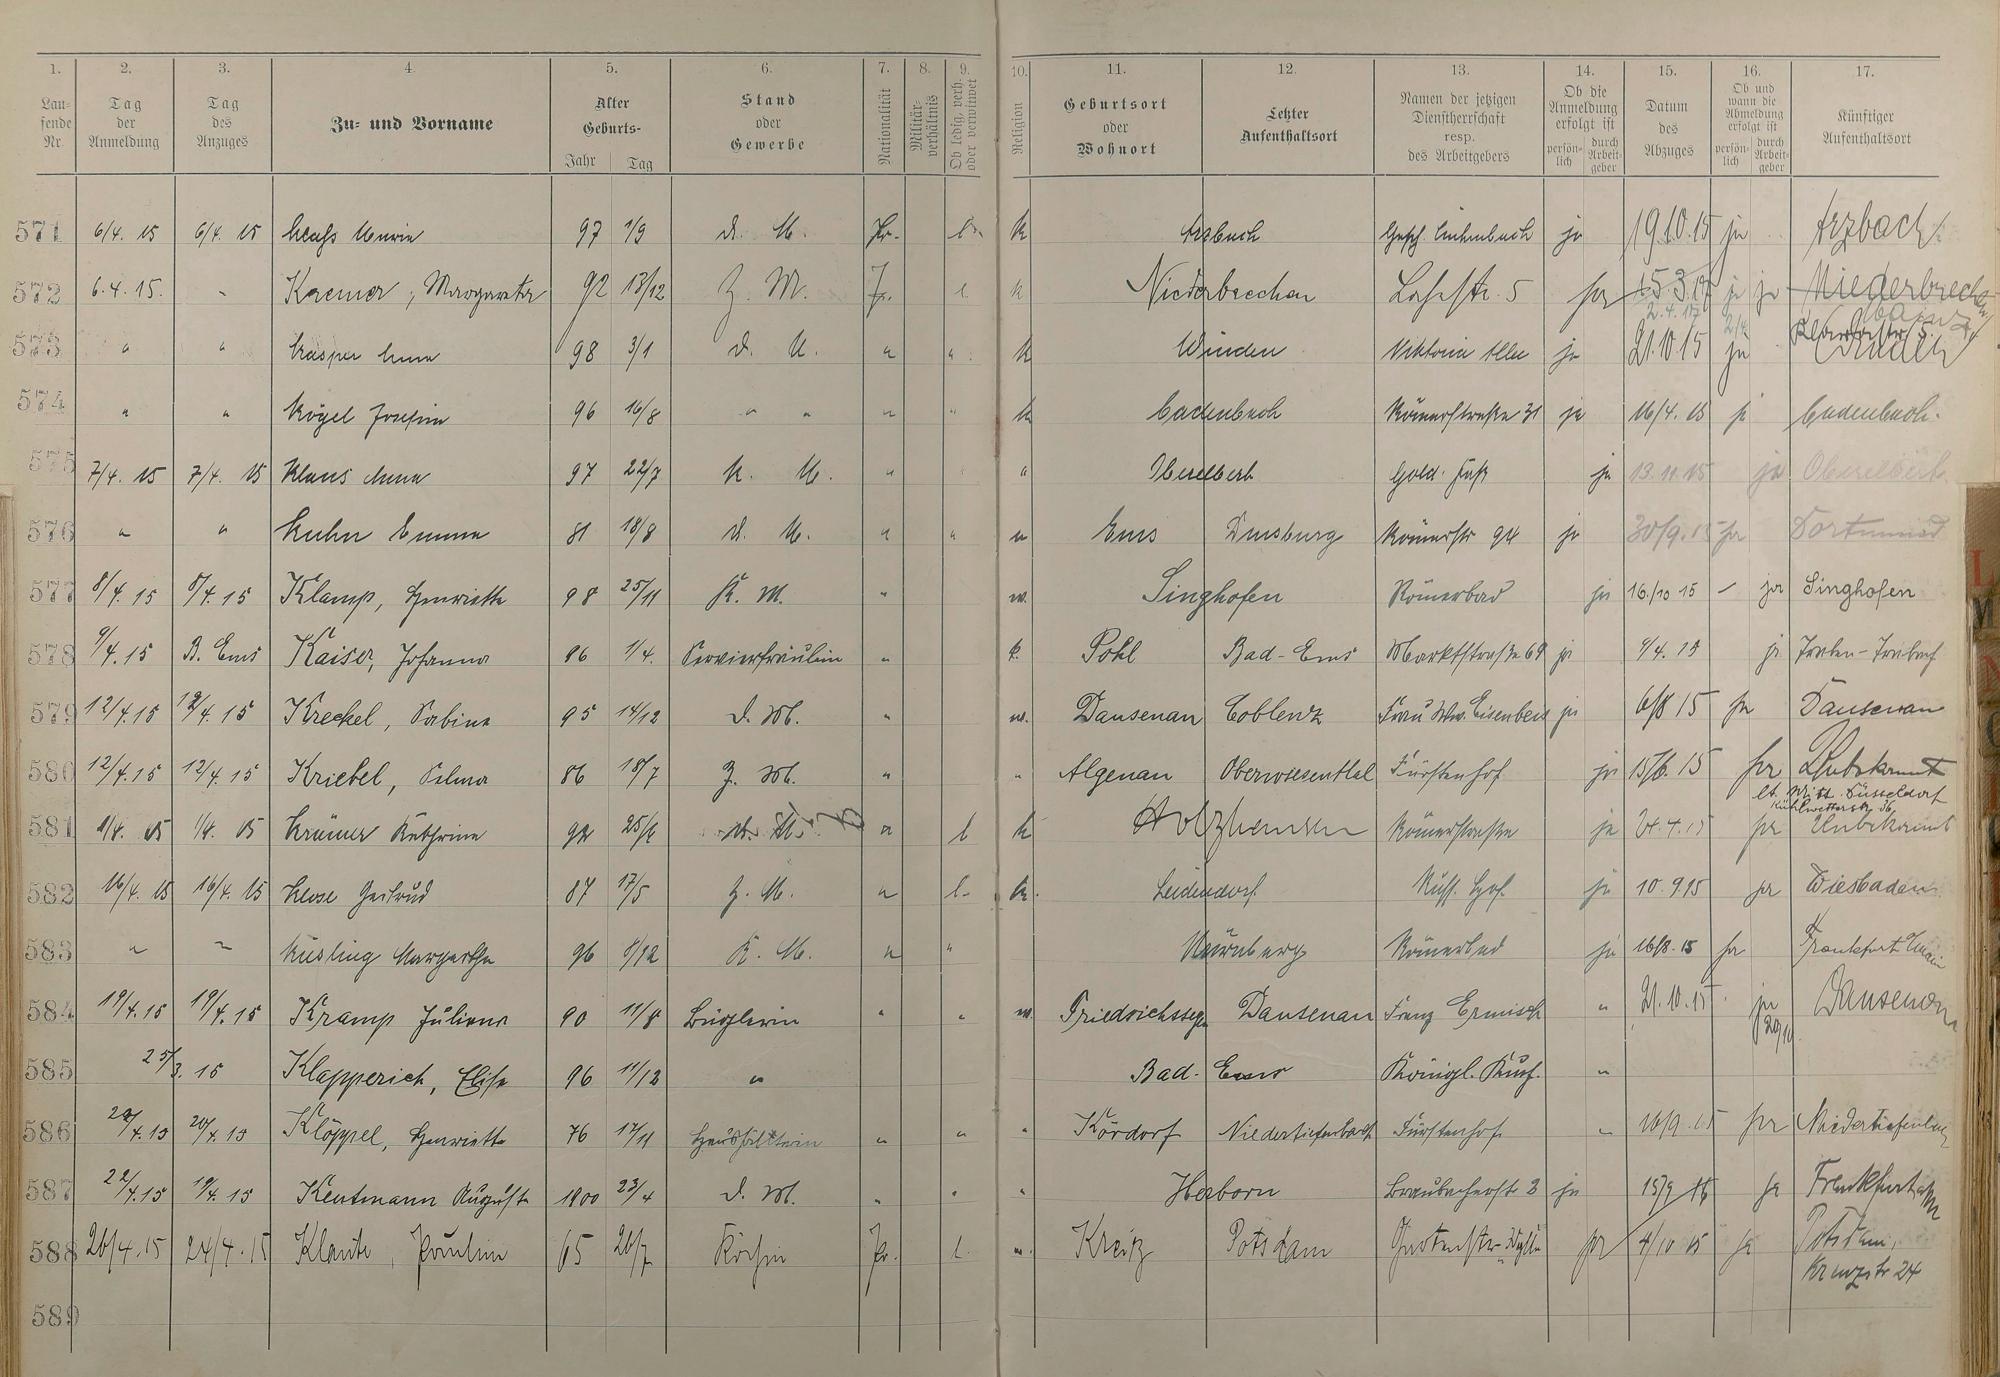 1. 2. 3. 4. 5. 6. 7. 8. 9. 10. 11. 12. 13. 14. 15. 16. 17.
Lau-
fende
Nr.
Tag
der
Anmeldung
Tag
des
Anzuges
Zu- und Vorname
Alter
Geburts-
Jahr Tag
Stand
oder
Gewerbe
Nationalität
Militär-
verhältnis
Ob ledig, verh.
oder verwitwet
Religion
Geburtsort
oder
Wohnort
Letzter
Aufenthaltsort
Namen der jetzigen
Dienstherrschaft
resp.
des Arbeitgebers
Ob die
Anmeldung
erfolgt ist
persön-
lich
durch
Arbeit-
geber
Datum
des
Abzuges
Ob und
wann die
Abmeldung
erfolgt ist
persön-
lich
durch
Arbeit-
geber
Künftiger
Aufenthaltsort
571 6/4. 15 6/4. 15 97 1/9 d. M. Pr. l. k Arzbach ja 19.10.15 ja Arzbach
572 6.4.15. - Kremer, Margareta 92 13/12 Z. M. Pr. l. k Niederbrechen Lahnstr. 5 ja 15.3.17 ja Niederbrechen
2.4.17
573 " " Casper Anna 98 3/1 d. M. " " k Winden Viktoria Allee ja 21.10.15 ja Winden
574 " " Kögel Josefine 96 16/8 " " " " k Cadenbach Römerstraße 31 ja 16/4. 15 ja Cadenbach.
575 7/4. 15 7/4. 15 Klaus Anna 97 22/7 K. M. " " Oberelbert Gold. Faß ja 13.11.15 ja Oberelbert
576 " " Kuhn Emma 81 18/8 d. M. " " Ems Duisburg Römerstr 94 ja 30/9. 15 ja Dortmund
577 8/4. 15 8/4. 15 Klamp, Henriette 98 25/11 K. M. " Singhofen Römerbad ja 16./10 15 - ja Singhofen
578 9/4.15 B. Ems Kaiser, Johanna 96 1/4. Servierfräulein " k. Pohl Bad-Ems Marktstraße 69 ja 9/4. 15 ja Traben-Trabach
579 12/4.15 12/4.15 Kreckel, Sabine 95 14/12 d. M. " Dausenau Coblenz Frau Ww. Eisenbeis ja 6/8 15 ja Dausenau
580 12/4.15 12/4.15 Kriebel, Selma 86 18/7 Z. M. " " Oberwiesenthal Fürstenhof ja 15/6. 15 ja Unbekannt
lt. Mitt. Düsseldorf
581 15 15 Krämer Kathrine 25/6 d. M. " l k Holzhausen Römerstraße ja 24.4.15 ja Unbekannt
582 16/4. 15 16/4. 15 Klose Gertrud 87 17/5 Z. M. " l. k. Leidendorf Russ. Hof. ja 10.9.15 ja Wiesbaden
583 " " Kusling Margaretha 96 8/12 K. M. " " Nürnberg Römerbad ja 16/8. 15 ja Frankfurt a/Main
584 19/4.15 19/4.15 Kramp Juliana 90 11/8 Büglerin " " Friedrichssegen Dausenau Franz Ermisch " 21.10.15 ja Dausenau
585 25/3. 15 Klapperich, Elise 96 11/12 " Bad- Ems Königl. Kurh. "
586 20/4.15 20/4.15 Klöppel, Henriette 76 17/11 Haushälterin " " " Kördorf Niedertiefenbach Fürstenhof " 16/9. 15 ja Niedertiefenbach
587 22/4.15 19/4.15 Kentmann Auguste 1900 23/4 d. M. " " " Herborn Braubacherstr 3 ja 15/9 15 ja Frankfurt a/M
588 26/4.15 24/4.15 Klaute, Pauline 65 26/7 Köchin Pr. l. Kreitz Potsdam ja 4/10 15 ja Potsdam,
Kreuzstr 24
589